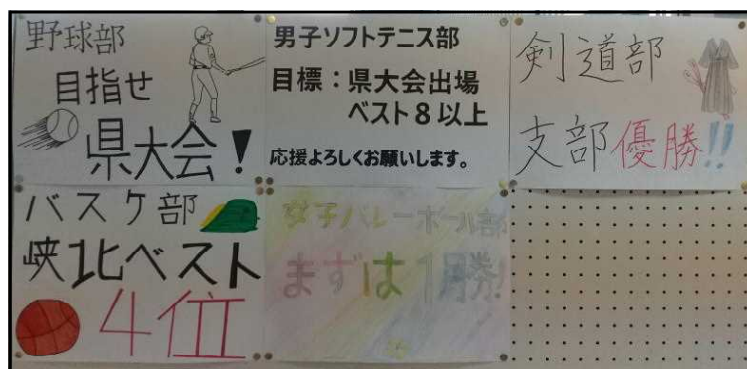 野球部
目指せ
県大会！
男子ソフトテニス部
目標：県大会出場
ベスト８以上
応援よろしくお願いします。
剣道部
支部優勝!!
バスケ部
峡北ベスト
4位
女子バレーボール部
まずは1勝!